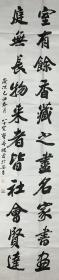 室有餘香藏之盡名家書畫
庭無長物來者皆社會賢達